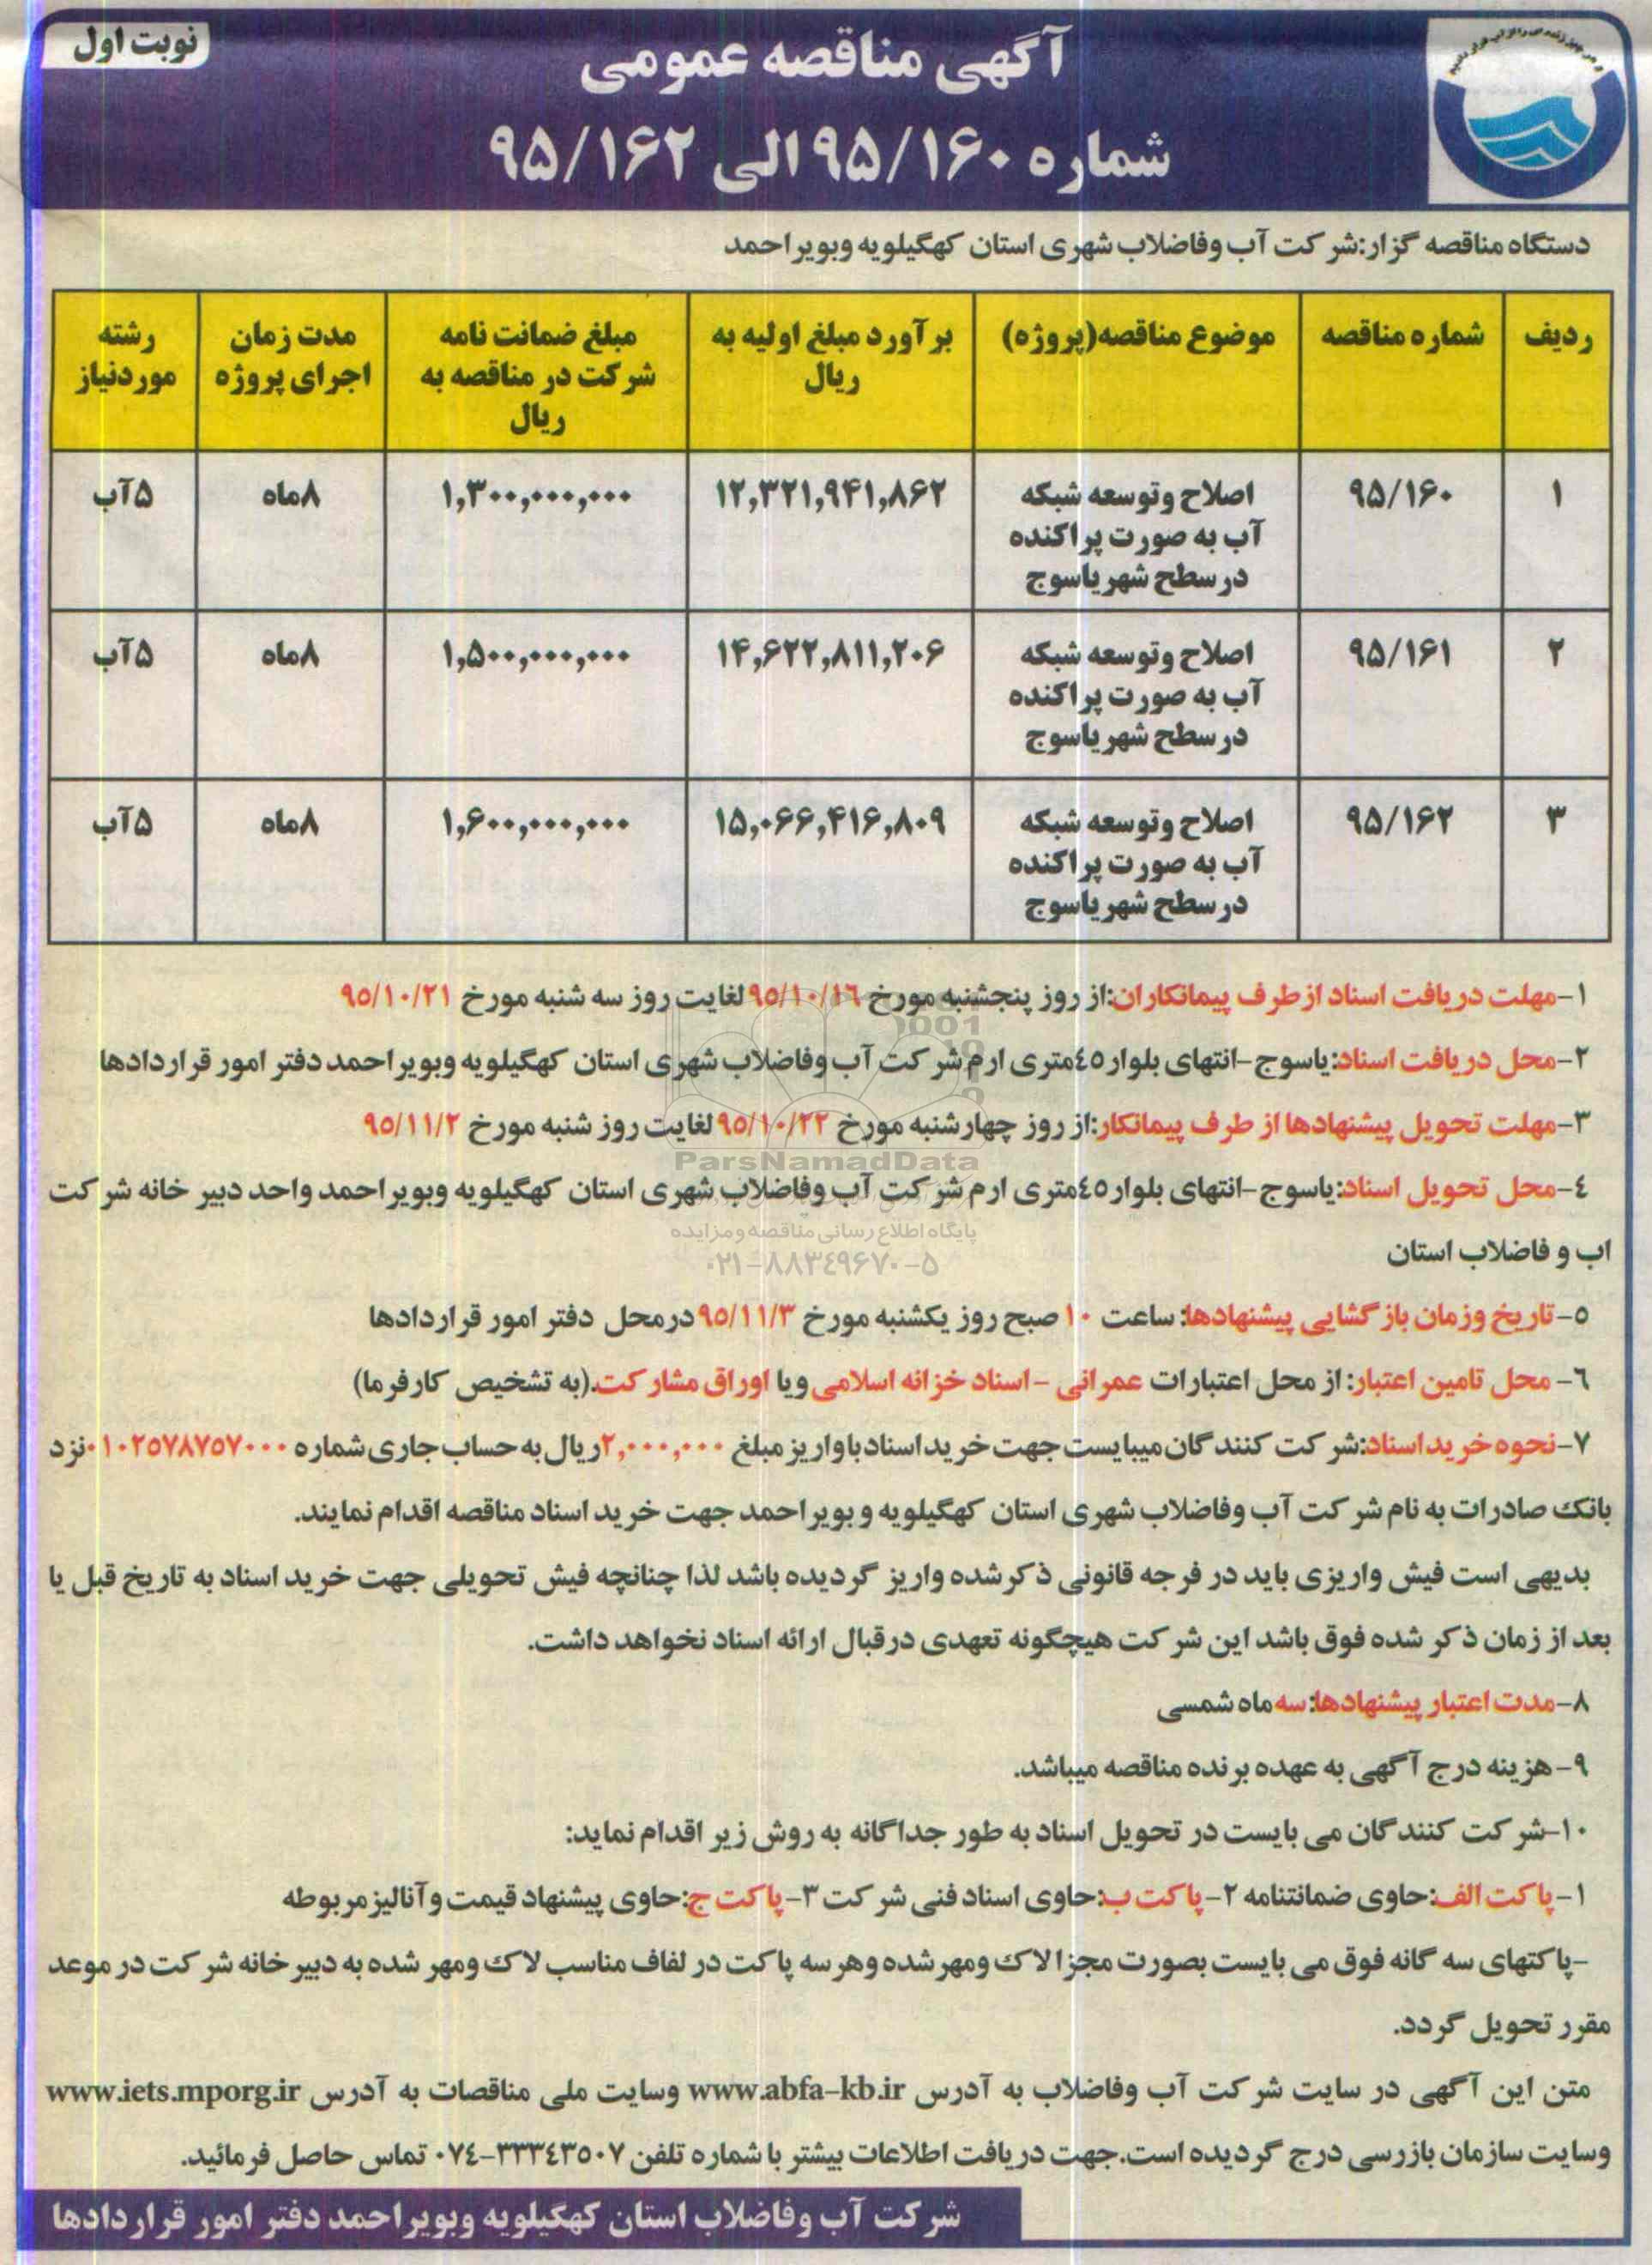 نوبت اول
آگهی مناقصه عمومی
شماره ۹۵/۱۶۰ الی ۹۵/۱۶۲
دستگاه مناقصه گزار:شرکت آب وفاضلاب شهری استان کهگیلویه وبویراحمد
ردیف | شماره مناقصه | موضوع مناقصه(پروژه) | برآورد مبلغ اولیه به ریال | مبلغ ضمانت نامه شرکت در مناقصه به ریال | مدت زمان اجرای پروژه | رشته موردنیاز
۱ | ۹۵/۱۶۰ | اصلاح وتوسعه شبکه آب به صورت پراکنده درسطح شهریاسوج | ۱۲,۳۲۱,۹۴۱,۸۶۲ | ۱,۳۰۰,۰۰۰,۰۰۰ | ۸ماه | ۵آب
۲ | ۹۵/۱۶۱ | اصلاح وتوسعه شبکه آب به صورت پراکنده درسطح شهریاسوج | ۱۴,۶۲۲,۸۱۱,۲۰۶ | ۱,۵۰۰,۰۰۰,۰۰۰ | ۸ماه | ۵آب
۳ | ۹۵/۱۶۲ | اصلاح وتوسعه شبکه آب به صورت پراکنده درسطح شهریاسوج | ۱۵,۰۶۶,۴۱۶,۸۰۹ | ۱,۶۰۰,۰۰۰,۰۰۰ | ۸ماه | ۵آب
۱-مهلت دریافت اسناد ازطرف پیمانکاران:از روز پنجشنبه مورخ ۹۵/۱۰/۱۶ لغایت روز سه شنبه مورخ ۹۵/۱۰/۲۱
۲-محل دریافت اسناد:یاسوج -انتهای بلوار۴۵متری ارم شرکت آب وفاضلاب شهری استان کهگیلویه وبویراحمد دفتر امور قراردادها
۳-مهلت تحویل پیشنهادها از طرف پیمانکار:از روز چهارشنبه مورخ ۹۵/۱۰/۲۲ لغایت روز شنبه مورخ ۹۵/۱۱/۲
ParsNamadData
۴-محل تحویل اسناد:یاسوج -انتهای بلوار۴۵متری ارم شرکت آب وفاضلاب شهری استان کهگیلویه وبویراحمد واحد دبیر خانه شرکت
پایگاه اطلاع رسانی مناقصه و مزایده
اب و فاضلاب استان
۰۲۱-۸۸۳۴۹۶۷۰-۵
۵-تاریخ وزمان بازگشایی پیشنهادها: ساعت ۱۰ صبح روز یکشنبه مورخ ۹۵/۱۱/۳ درمحل دفتر امور قراردادها
۶- محل تامین اعتبار: از محل اعتبارات عمرانی - اسناد خزانه اسلامی ویا اوراق مشارکت.(به تشخیص کارفرما)
۷-نحوه خرید اسناد:شرکت کنندگان میبایست جهت خرید اسناد باواریز مبلغ ۲,۰۰۰,۰۰۰ریال به حساب جاری شماره ۰۱۰۲۵۷۸۷۵۷۰۰۰ نزد
بانک صادرات به نام شرکت آب وفاضلاب شهری استان کهگیلویه و بویراحمد جهت خرید اسناد مناقصه اقدام نمایند.
بدیهی است فیش واریزی باید در فرجه قانونی ذکرشده واریز گردیده باشد لذا چنانچه فیش تحویلی جهت خرید اسناد به تاریخ قبل یا
بعد از زمان ذکر شده فوق باشد این شرکت هیچگونه تعهدی درقبال ارائه اسناد نخواهد داشت.
۸-مدت اعتبار پیشنهادها:سه ماه شمسی
۹- هزینه درج آگهی به عهده برنده مناقصه میباشد.
۱۰-شرکت کنندگان می بایست در تحویل اسناد به طور جداگانه به روش زیر اقدام نماید:
۱-پاکت الف:حاوی ضمانتنامه ۲- پاکت ب:حاوی اسناد فنی شرکت ۳- پاکت ج:حاوی پیشنهاد قیمت وآنالیز مربوطه
-پاکتهای سه گانه فوق می بایست بصورت مجزا لاک ومهر شده وهر سه پاکت در لفاف مناسب لاک ومهر شده به دبیر خانه شرکت در موعد
مقرر تحویل گردد.
متن این آگهی در سایت شرکت آب وفاضلاب به آدرس www.abfa-kb.ir وسایت ملی مناقصات به آدرس www.iets.mporg.ir
وسایت سازمان بازرسی درج گردیده است.جهت دریافت اطلاعات بیشتر با شماره تلفن ۳۳۳۴۳۵۰۷-۰۷۴ تماس حاصل فرمائید.
شرکت آب وفاضلاب استان کهگیلویه وبویراحمد دفتر امور قراردادها